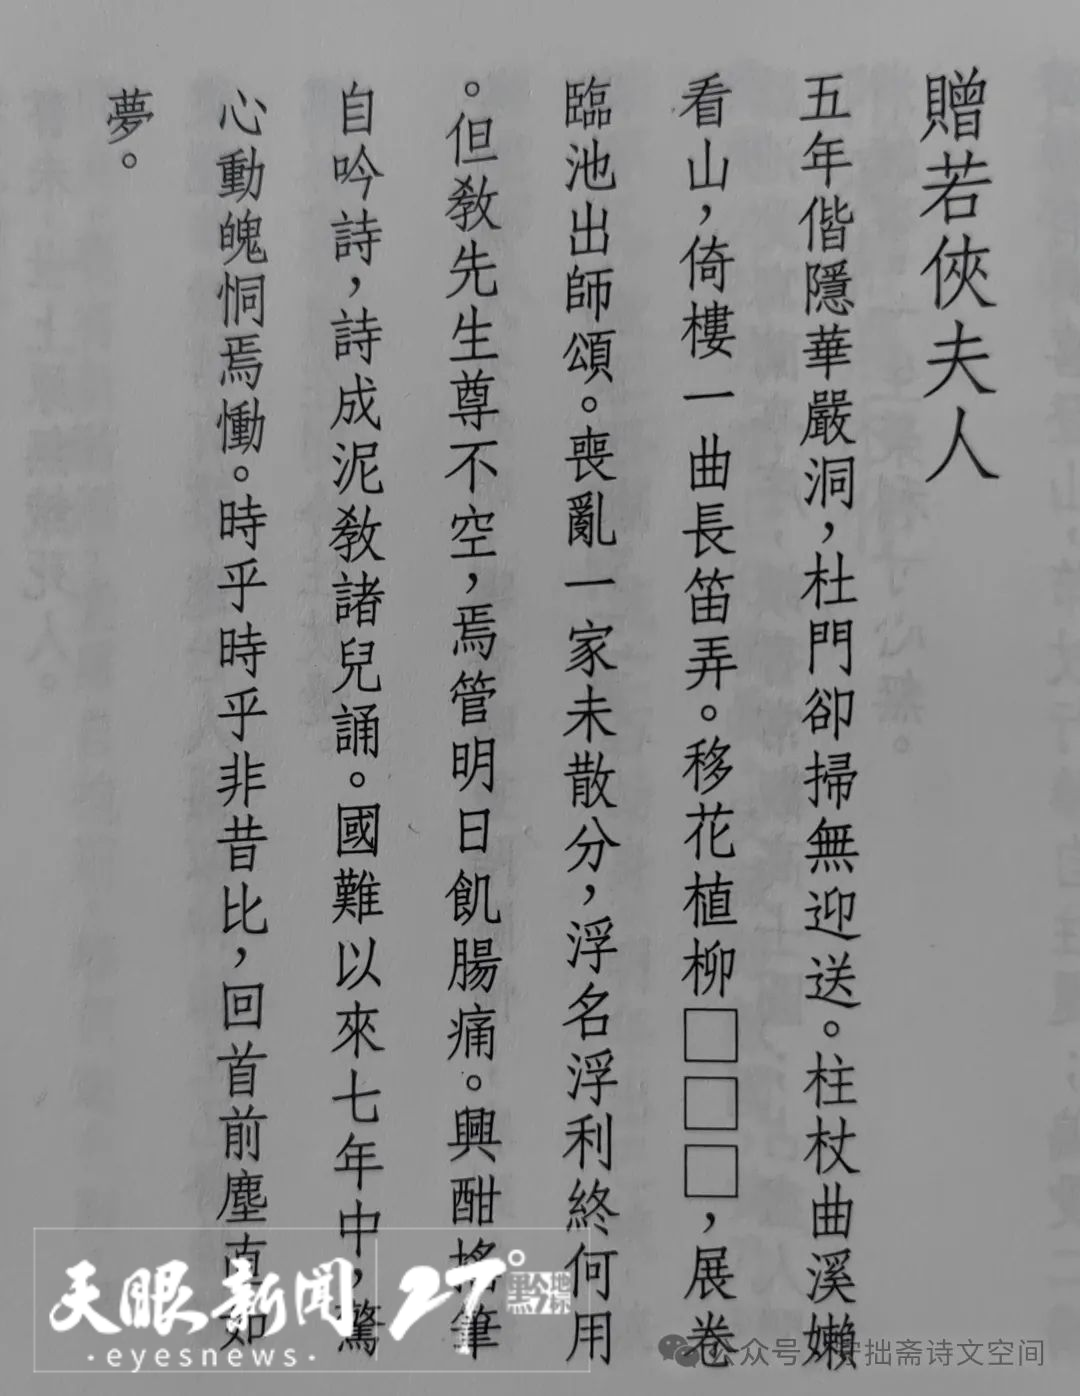 贈若俠夫人
五年偕隱華嚴洞，杜門卻掃無迎送。柱杖曲溪嬾
看山，倚樓一曲長笛弄。移花植柳□□□，展卷
臨池出師頌。喪亂一家未散分，浮名浮利終何用
。但教先生尊不空，焉管明日飢腸痛。興酣搖筆
自吟詩，詩成泥教諸兒誦。國難以來七年中，驚
心動魄恫焉慟。時乎時乎非昔比，回首前塵直如
夢。
天眼新闻
·eyesnews·
27°
黔
公众号 守拙斋诗文空间